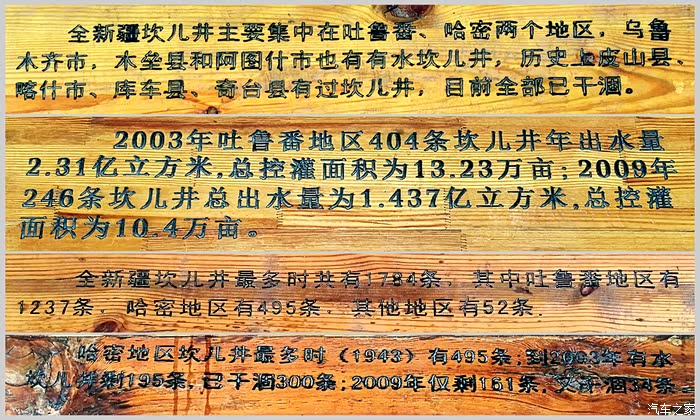 全新疆坎儿井主要集中在吐鲁番、哈密两个地区，乌鲁
木齐市，木垒县和阿图什市也有有水坎儿井，历史上皮山县、
喀什市、库车县、奇台县有过坎儿井，目前全部已干涸。
2003年吐鲁番地区404条坎儿井年出水量
2.31亿立方米,总控灌面积为13.23万亩;2009年
246条坎儿井总出水量为1.437亿立方米,总控灌
面积为10.4万亩。
全新疆坎儿井最多时共有1784条，其中吐鲁番地区有
1237条，哈密地区有495条，其他地区有52条.
哈密地区坎儿井最多时（1943）有495条;到2003年有水
坎儿井剩195条,已干涸300条;2009年仅剩161条,又干涸34条。
汽车之家